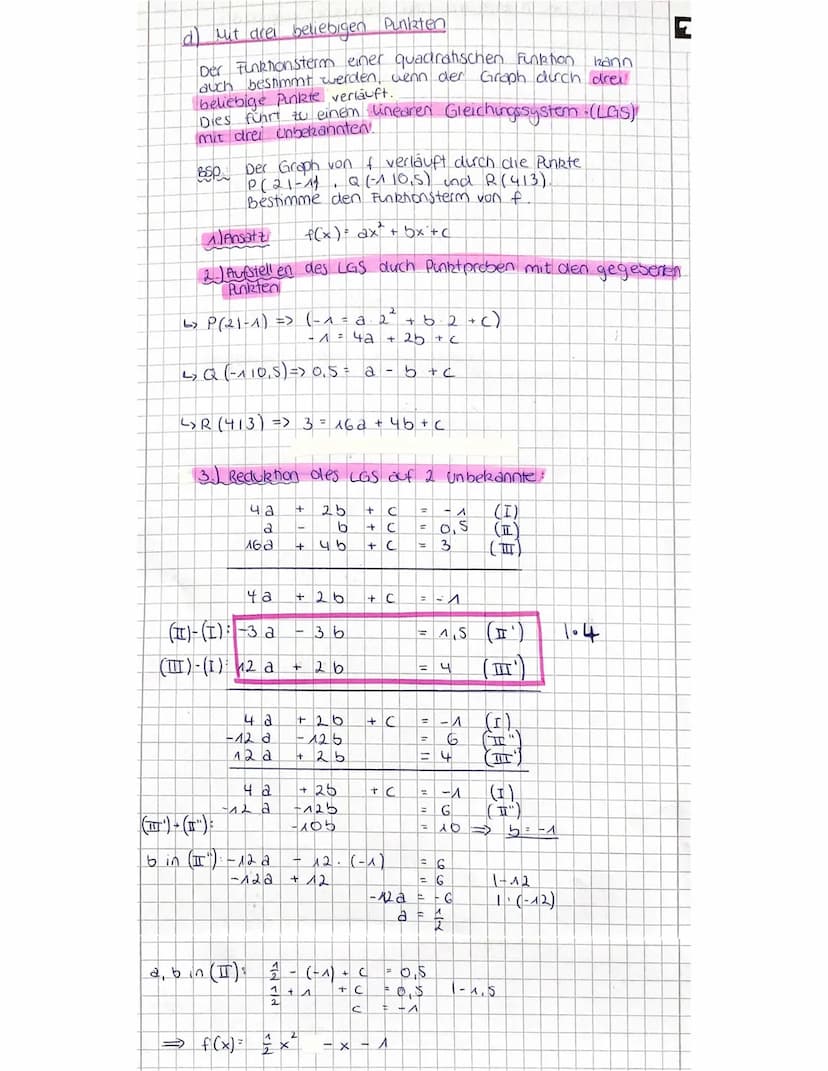 d) Mit drei beliebigen Punkten
Der Funktionsterm einer quadratischen Funktion kann
auch bestimmt werden, wenn der Graph durch drei
beliebige Punkte verläuft.
Dies führt zu einem linearen Gleichungssystem (LGS)
mit drei Unbekannten.
BSP. Der Graph von f verläuft durch die Punkte
P(2|-1), Q(-1|0,5) und R(4|3).
Bestimme den Funktionsterm von f.
1.) Ansatz f(x) = ax² + bx + c
2.) Aufstellen des LGS duch Punktproben mit den gegebenen
Punkten
↳ P(2|-1) => (-1 = a·2² + b·2 + c)
-1 = 4a + 2b + c
↳ Q(-1|0,5) => 0,5 = a - b + c
↳ R(4|3) => 3 = 16a + 4b + c
3.) Reduktion des LGS auf 2 Unbekannte:
4a + 2b + c = -1 (I)
a - b + c = 0,5 (II)
16a + 4b + c = 3 (III)
4a + 2b + c = -1
(II)-(I): -3a - 3b = 1,5 (II') |·4
(III)-(I): 12a + 2b = 4 (III')
4a + 2b + c = -1 (I)
-12a -12b = 6 (II'')
12a + 2b = 4 (III')
4a + 2b + c = -1 (I)
-12a -12b = 6 (II'')
(III')+(II''): -10b = 10 => b = -1
b in (II''): -12a - 12·(-1) = 6
-12a + 12 = 6 |-12
-12a = -6 |:(-12)
a = 1/2
a, b in (II): 1/2 - (-1) + c = 0,5
1/2 + 1 + c = 0,5 |-1,5
c = -1
=> f(x) = 1/2 x² - x - 1